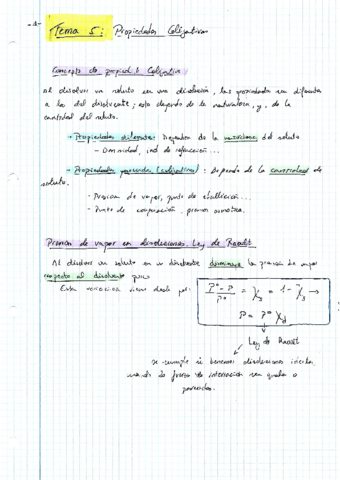 -1-
Tema 5: Propiedades Coligativas
Concepto de propiedad Coligativa
Al disolver un soluto en una disolución, las propiedades son diferentes
a las del disolvente; esto depende de la naturaleza y, de la
cantidad del soluto.
→ Propiedades Dependen de la naturaleza del soluto
- Densidad, ind. de refracción...
→ Propiedades (coligativas): Depende de la cantidad de
soluto.
- Presión de vapor, punto de ebullición...
- Punto de congelación, presión osmótica.
Presión de vapor en disoluciones. Ley de Raoult
Al disolver un soluto en un disolvente disminuye la presión de vapor
respecto al disolvente puro
Esta variación viene dada por:
P° - P / P° = χ₂ = 1 - χ₁ →
P = P° χ₁
Ley de Raoult
se cumple si tenemos disoluciones ideales,
cuando la fuerza de interacción sea igual o
parecidas.